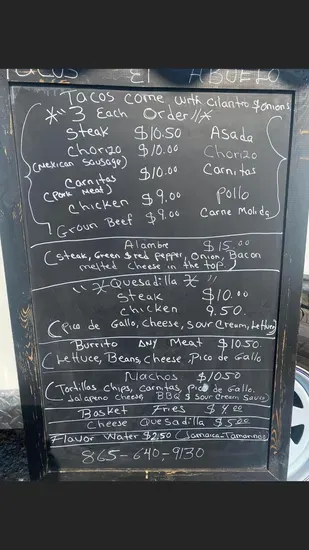 TACOS EL ABUELO
Tacos come with cilantro $ onions
*" 3 Each Order "*
Steak $10.50 Asada
Chorizo $10.00 Chorizo
(Mexican Sausage)
Carnitas $10.00 Carnitas
(Pork Meat)
Chicken $9.00 Pollo
Groun Beef $9.00 Carne Molida
Alambre $15.00
(Steak, Green $ red Pepper, Onion, Bacon
melted cheese in the top.)
" * Quesadilla * "
Steak $10.00
Chicken 9.50
(Pico de Gallo, Cheese, Sour Cream, Lettuce)
Burrito Any Meat $10.50
(Lettuce, Beans, Cheese Pico de Gallo
Nachos $10.50
(Tortillas Chips, Carnitas, Pico de Gallo
Jalapeno Cheese, BBQ $ Sour Cream Sauce)
Basket Fries $4.00
Cheese Quesadilla $5.00
Flavor Water $2.50 (Jamaica-Tamarindo)
865-640-9130